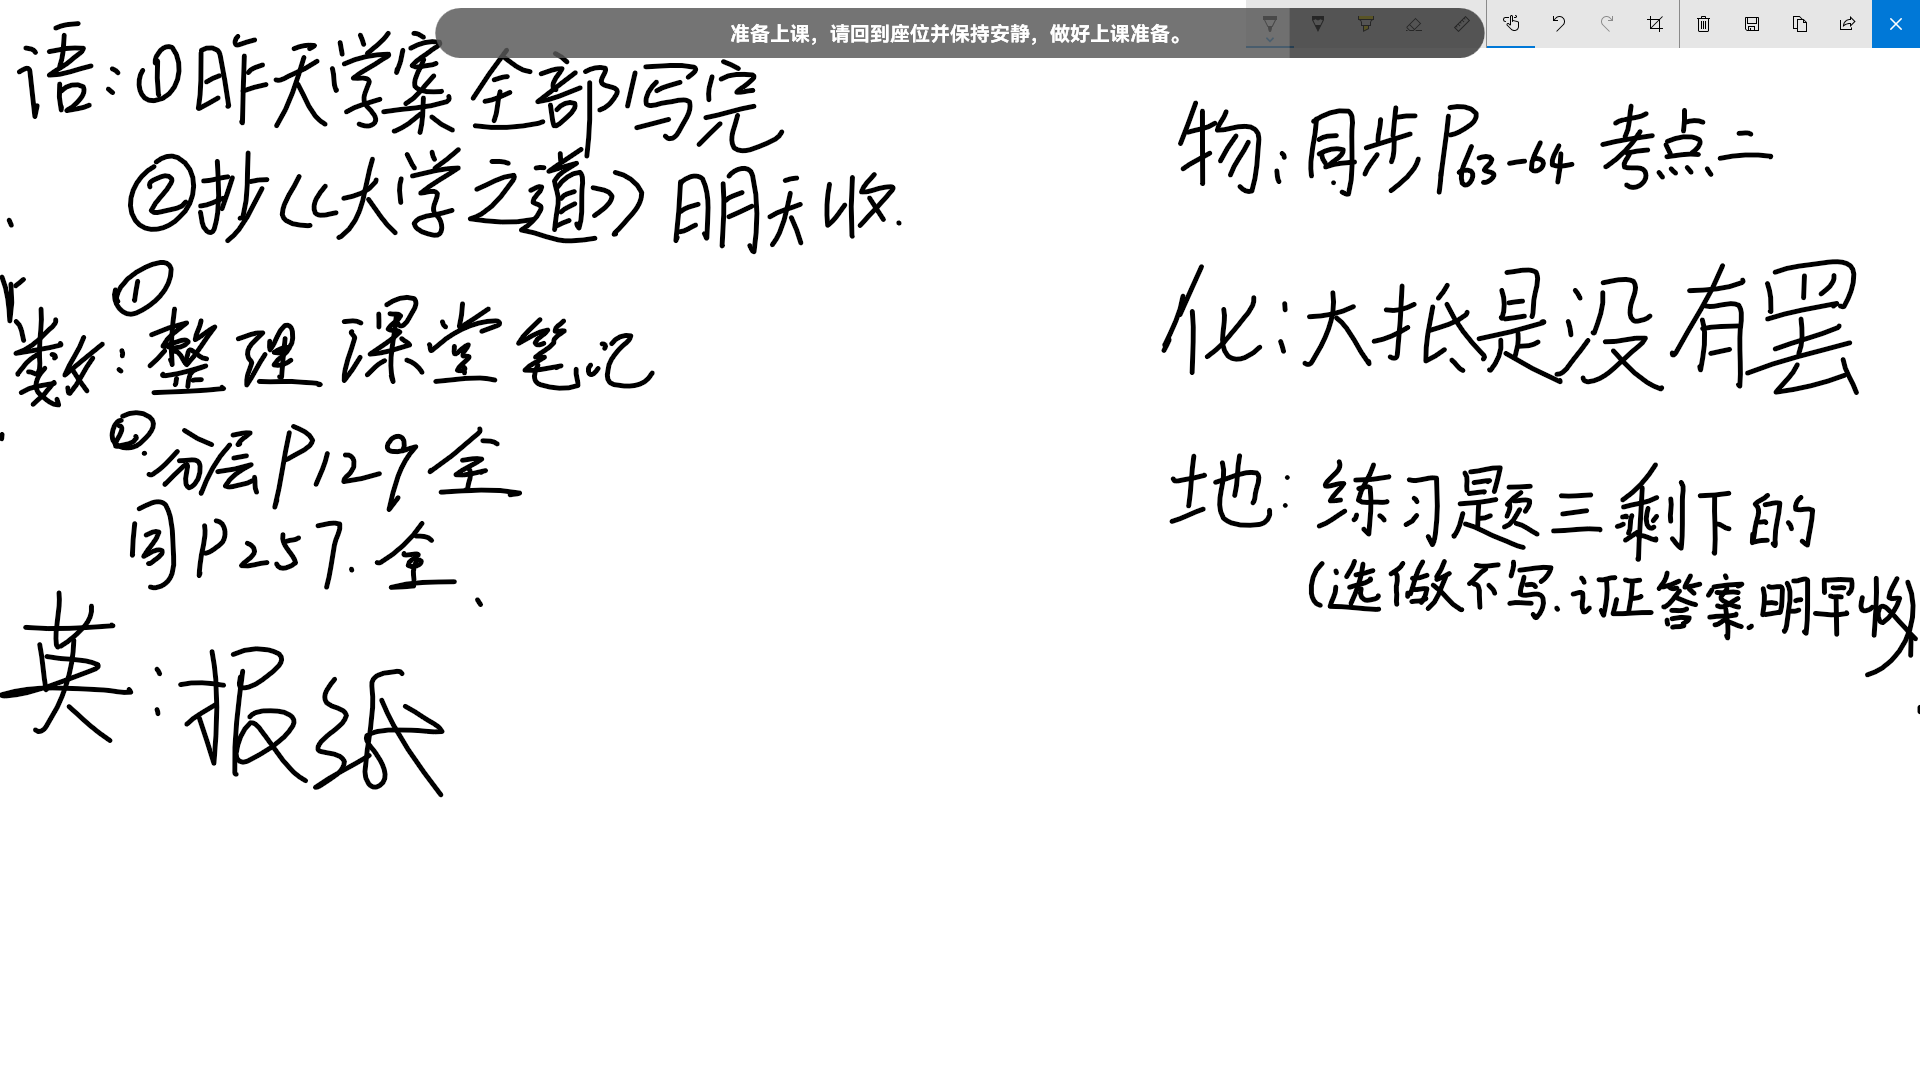 准备上课，请回到座位并保持安静，做好上课准备。
语：①昨天学案全部写完
②抄《大学之道》明天收.
数：①整理课堂笔记
②.分层P129全
同P257.全、
英：报纸
物：同步P63-64考点二
化：大抵是没有罢
地：练习题三剩下的
(选做不写.订正答案.明早收)